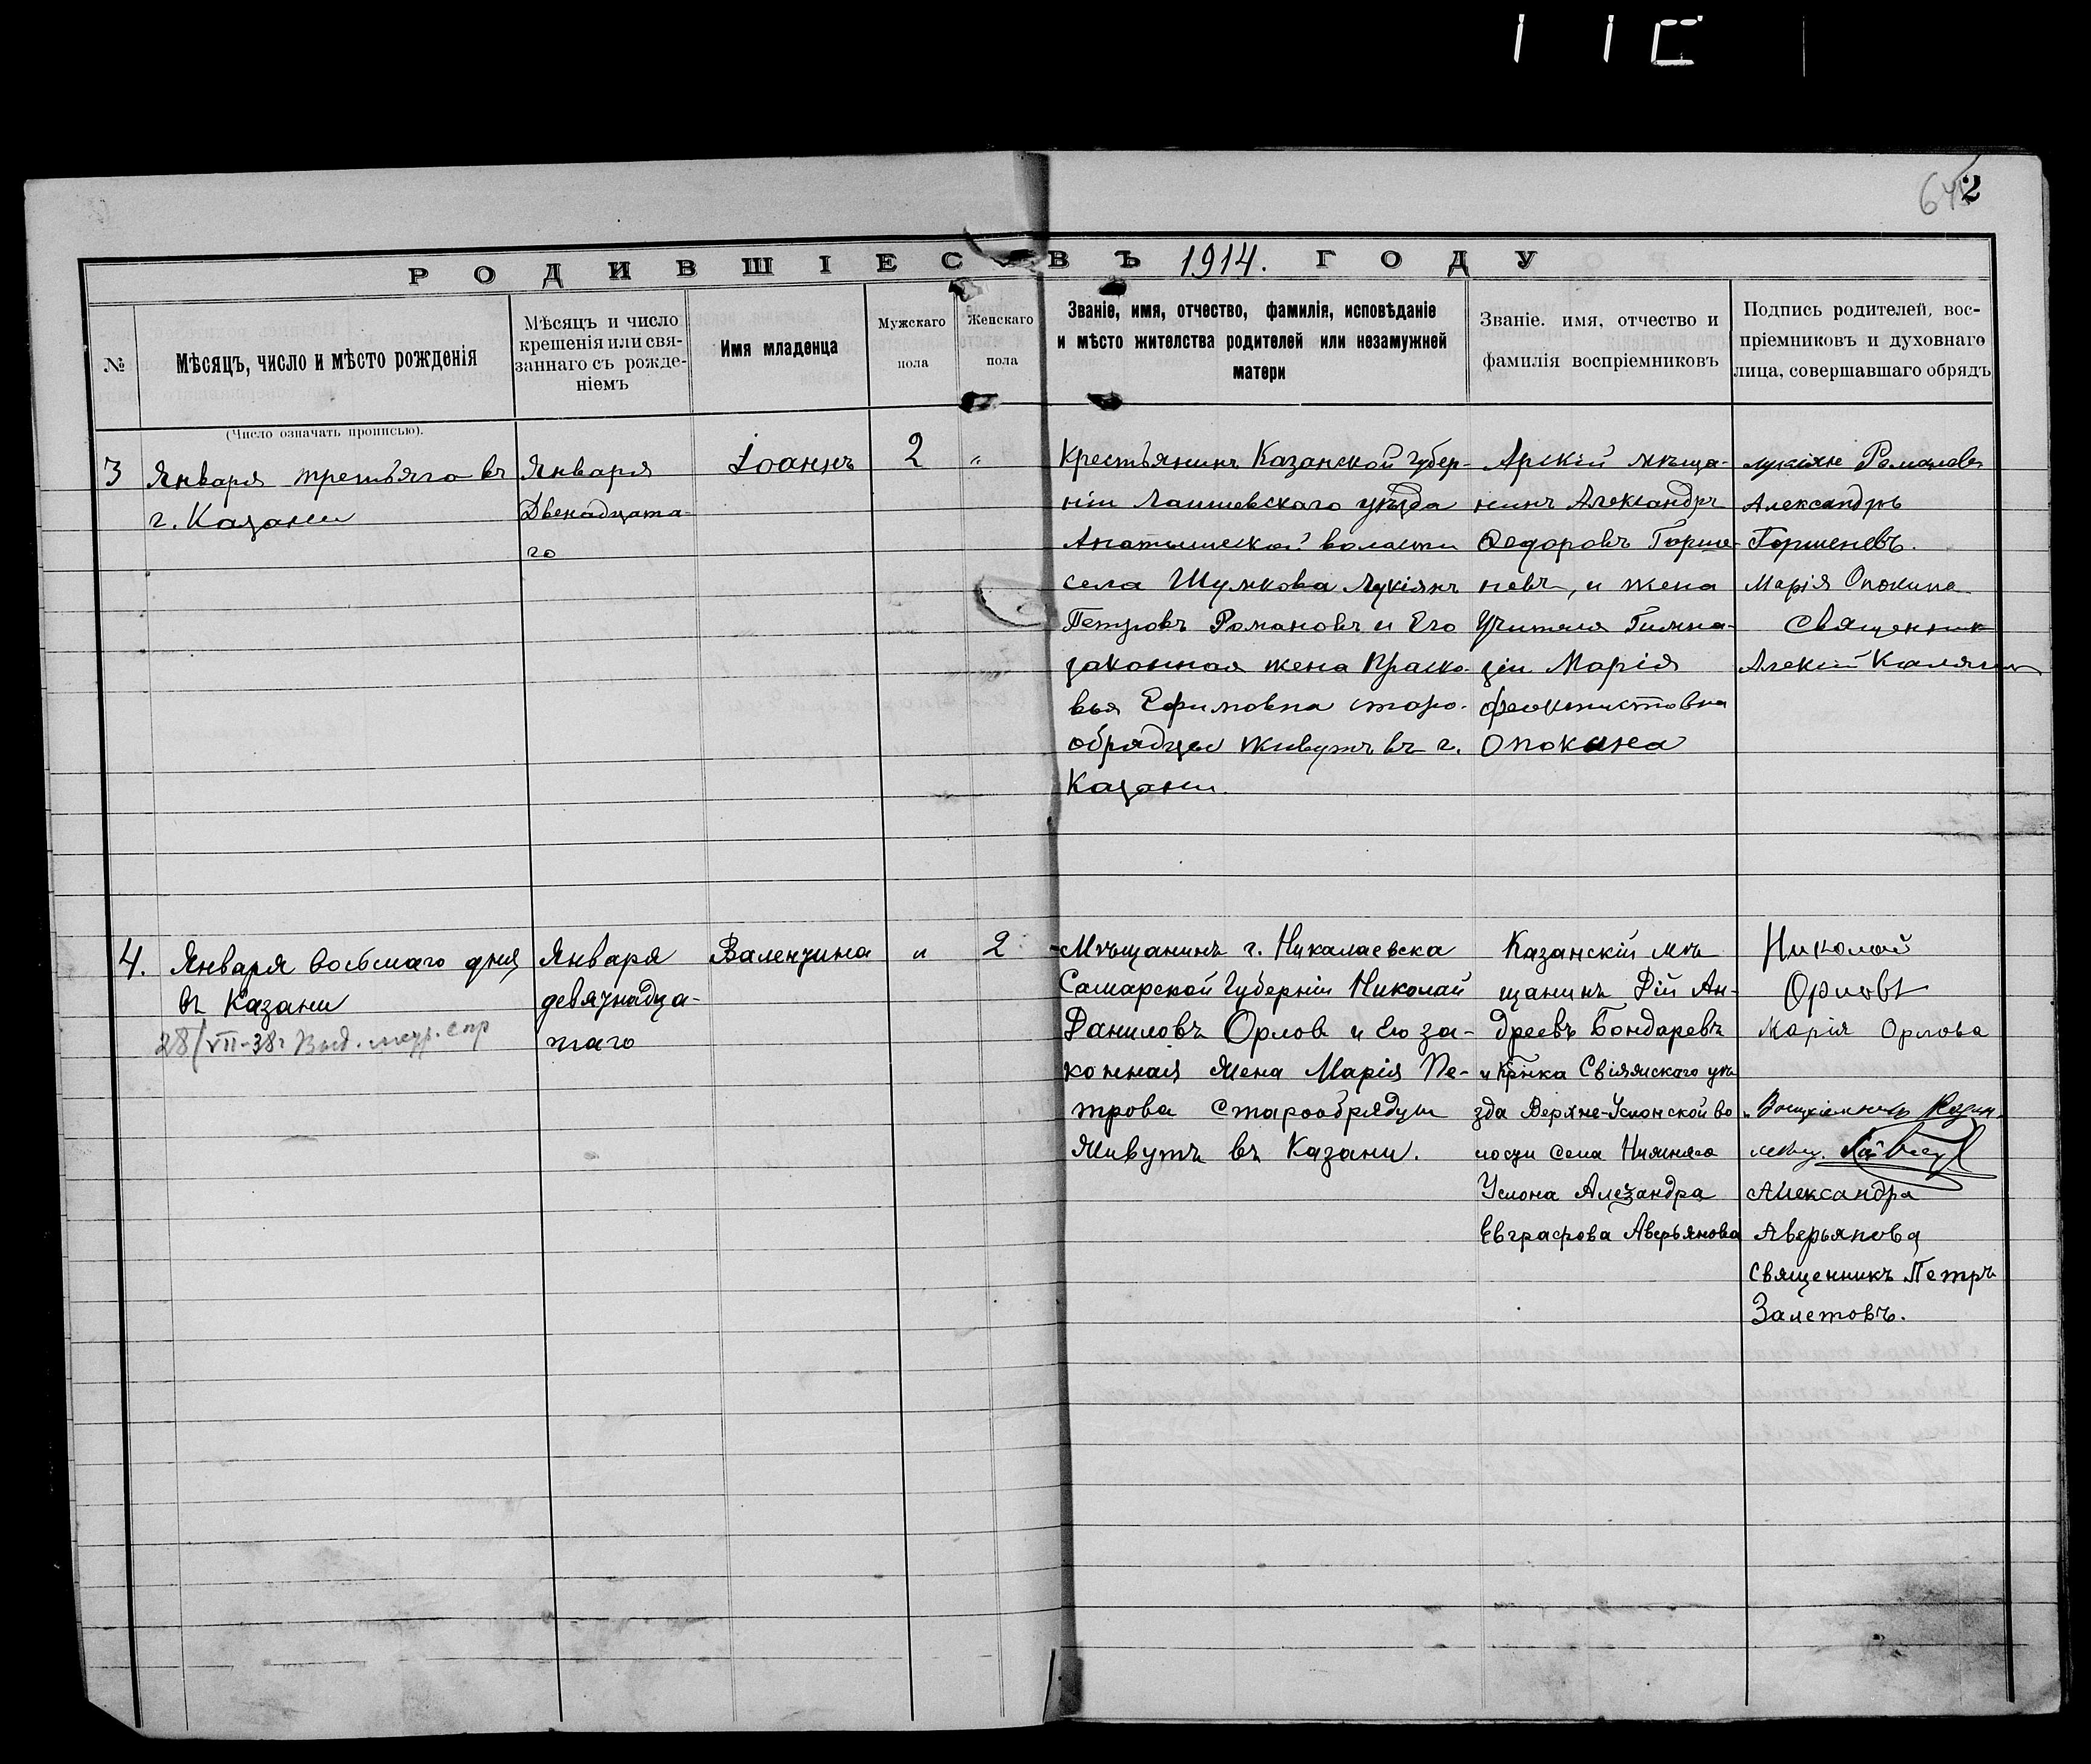 2
РОДИВШІЕС ВЪ 1914. ГОДУ
№
Мѣсяцъ, число и мѣсто рожденія
(Число означать прописью).
Мѣсяцъ и число
крешенія или свя-
заннаго съ рожде-
ніемъ
Имя младенца
Мужскаго
пола
Женскаго
пола
Званіе, имя, отчество, фамилія, исповѣданіе
и мѣсто жителства родителей или незамужней
матери
Званіе. имя, отчество и
фамилія воспріемниковъ
Подпись родителей, вос-
пріемниковъ и духовнаго
лица, совершавшаго обрядъ
3
Января третьяго въ
г. Казани
Января
Двенадцата-
го
Іоаннъ
2
"
Крестьянинъ Казанской Губер-
ніи Лаишевскаго уѣзда
Анатышской волости
села Шумкова Лукіянъ
Петровъ Романовъ и Его
законная жена Праско-
вья Ефимовна старо-
обрядцы живутъ въ г.
Казани.
Арскій мѣща-
нинъ Александръ
Ѳедоровъ Горше-
невъ, и жена
Учителя Гимна-
зіи Марія
Феоктистовна
Опокина
Лукіянъ Романовъ
Александръ
Горшеневъ.
Марія Опокина
Священник
Алексій Калягин
4.
Января восьмаго дня
въ Казани
28/VII-38г Выд. спр
Января
девятнадца-
таго
Валентина
"
2
Мѣщанинъ г. Николаевска
Самарской Губерніи Николай
Даниловъ Орлов и Его за-
конная жена Марія Пе-
трова Старообрядцы
Живутъ въ Казани.
Казанскій мѣ-
щанинъ Дій Ан-
дреевъ Бондаревъ
и Кр-нка Свіяжскаго уѣ
зда Верхне-Услонской во
лости села Нижняго
Услона Александра
Евграфова Аверьянова
Николай
Орловъ
Марія Орлова
Воспріемникъ Казан.
мѣщ.
Александра
Аверьянова
Священникъ Петръ
Залетовъ.